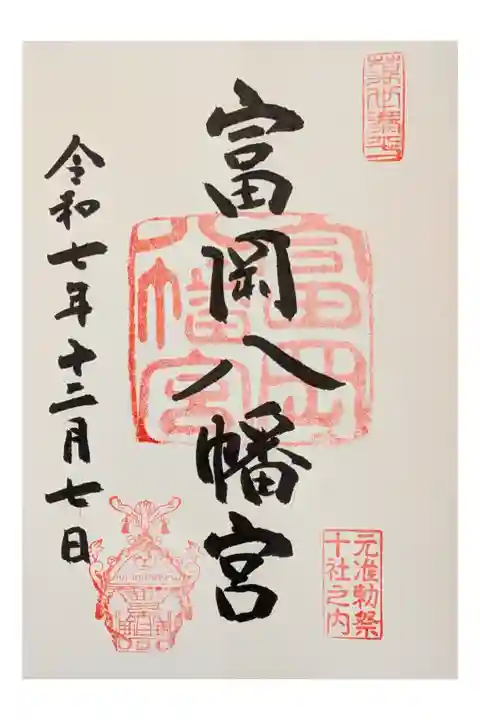 富岡八幡宮
富岡
八幡宮
元准勅祭
十社之内
令和七年十二月七日